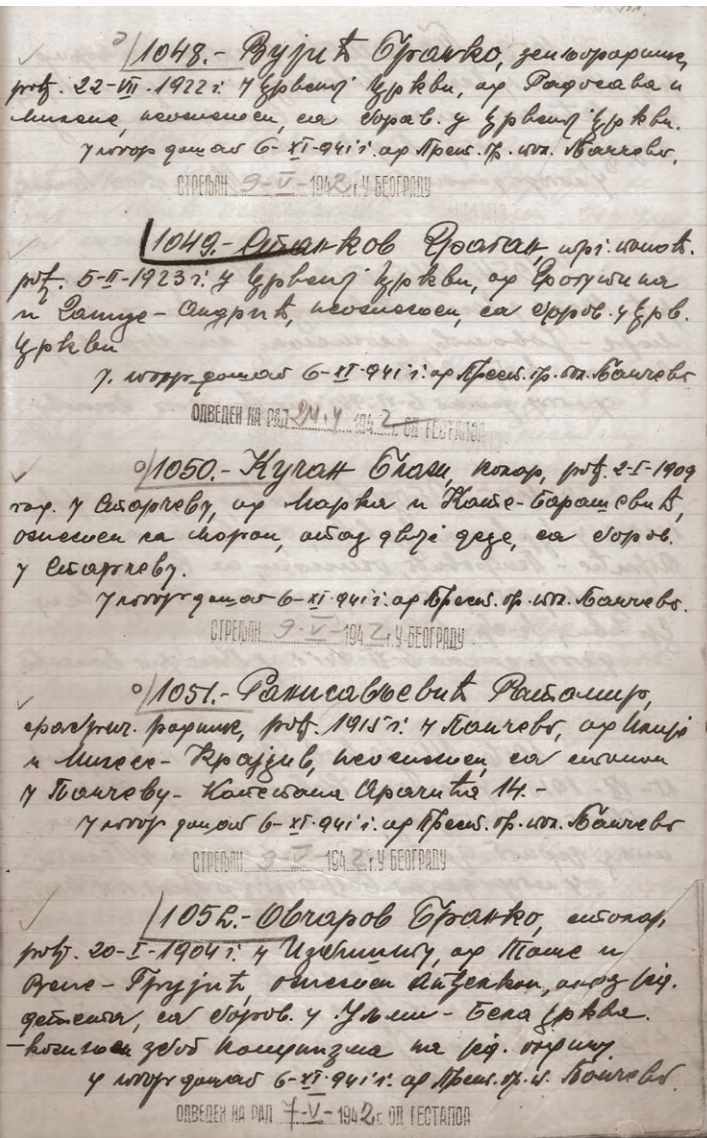 1048.- Вујић Бранко, земљорадник,
рођ. 22-VII-1922 г. у Црвеној Цркви, од Радосава и
Милене, неожењен, са борав. у Црвеној Цркви.
У логор дошао 6-XI-941 г. од Прест. гр. пол. Панчево.
СТРЕЉАН 9-V-1942 г. У БЕОГРАДУ
1049.- Станков Драган, трг. помоћ.
рођ. 5-II-1923 г. у Црвеној Цркви, од
и - Андрић, неожењен, са борав. у Црв.
Цркви
У логор дошао 6-XI-941 г. од Прест. гр. пол. Панчево
ОДВЕДЕН НА РАД 24.V 1942 г. ОД ГЕСТАПОА
1050.- Кучан Блаж, колар, рођ. 2-I-1909
год. у Старчеву, од Марка и Кате-Барашевић,
ожењен са Маром, отац двоје деце, са борав.
у Старчеву.
У логор дошао 6-XI-941 г. од Прест. гр. пол. Панчево.
СТРЕЉАН 9-V-1942 г. У БЕОГРАДУ
1051.- Ранисављевић Ратомир,
фабрич. радник, рођ. 1915 г. у Панчеву, од Илије
и - Крајзив, неожењен, са станом
у Панчеву- Арачића 14.-
У логор дошао 6-XI-941 г. од Прест. гр. пол. Панчево
СТРЕЉАН 9-V-1942 г. У БЕОГРАДУ
1052.- Овчаров Бранко, столар,
рођ. 20-I-1904 г. у Избишту, од Томе и
- Грујић, ожењен Анђелком, отац јед.
детета, са борав. у Уљми - Бела Црква.
- због комунизма на јед. годину
У логор дошао 6-XI-941 г. од Прест. гр. п. Панчево.
ОДВЕДЕН НА РАД 7-V-1942 г. ОД ГЕСТАПОА